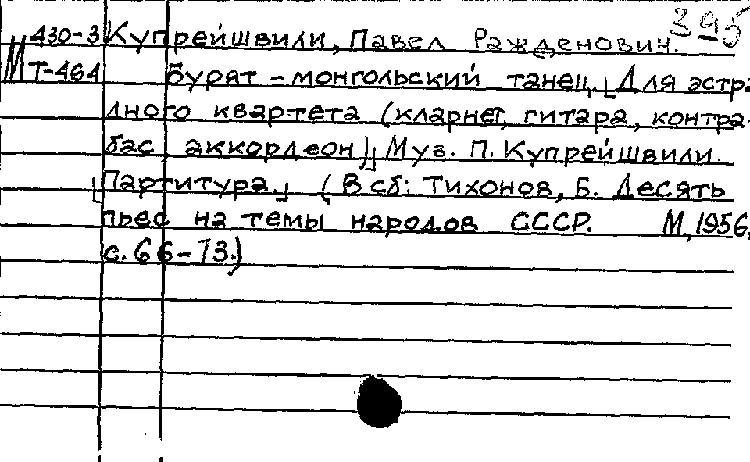 395
430-3 Купрейшвили, Павел Ражденович.
М Т-464 Бурят-монгольский танец. [Для эстра-
дного квартета (кларнет, гитара, контра-
бас аккордеон)] Муз. П. Купрейшвили.
[Партитура.] (В сб: Тихонов, Б. Десять
пьес на темы народов СССР. М, 1956,
с. 66-73.)